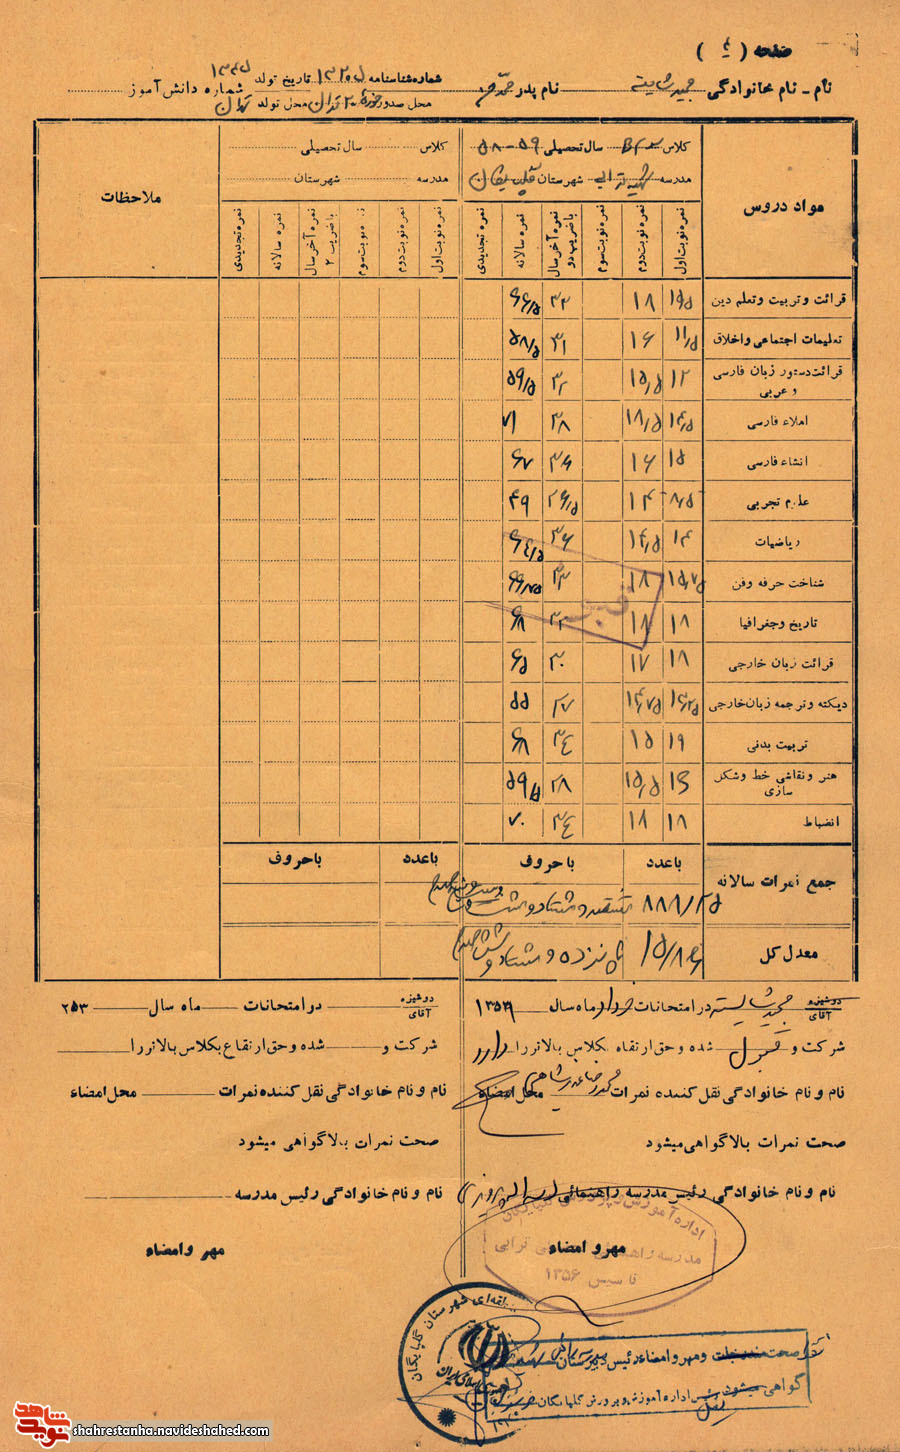 صفحه ( ۴ )
نام ـ نام خانوادگی مجید شایسته نام پدر شماره شناسنامه ۱۳۲۰۵ تاریخ تولد ۱۳۴۵ شماره دانش آموز
محل صدور حوزه ۲۰ تهران محل تولد تهران
کلاس سال تحصیلی ۵۹-۵۸
مدرسه شهید ترابی شهرستان گلپایگان
کلاس سال تحصیلی
مدرسه شهرستان
ملاحظات
مواد دروس
نمره نوبت اول نمره نوبت دوم نمره نوبت سوم نمره آخر سال با ضریب دو نمره سالانه نمره تجدیدی
نمره نوبت اول نمره نوبت دوم نمره نوبت سوم نمره آخر سال با ضریب ۲ نمره سالانه نمره تجدیدی
قرائت و تربیت و تعلم دین ۱۸ ۶۶/۵
تعلیمات اجتماعی و اخلاق ۱۱/۵ ۱۶ ۳۱ ۵۸/۵
قرائت دستور زبان فارسی و عربی ۱۲ ۱۵/۵ ۳۲ ۵۹/۵
املاء فارسی ۱۴/۵ ۱۸/۵ ۳۸ ۷۱
انشاء فارسی ۱۵ ۱۶ ۳۶ ۶۷
علوم تجربی ۸/۵ ۱۴ ۲۶/۵ ۴۹
ریاضیات ۱۴ ۱۴/۵ ۳۶ ۶۴/۵
شناخت حرفه و فن ۱۵/۷۵ ۱۸ ۶۶/۷۵
تاریخ و جغرافیا ۱۸ ۱۸ ۳۲ ۶۸
قرائت زبان خارجی ۱۸ ۱۷ ۳۰ ۶۵
دیکته و ترجمه زبان خارجی ۱۳/۲۵ ۱۴/۷۵ ۲۷ ۵۵
تربیت بدنی ۱۹ ۱۵ ۳۴ ۶۸
هنر و نقاشی خط و شکل سازی ۱۶ ۱۵/۵ ۲۸ ۵۹/۵
انضباط ۱۸ ۱۸ ۳۴ ۷۰
قبول
باعدد باحروف باعدد باحروف
جمع نمرات سالانه ۸۸۸/۲۵ هشتصد و هشتاد و هشت و بیست و پنج صدم
معدل کل ۱۵/۸۶ پانزده و هشتاد و شش صدم
دوشیزه آقای مجید شایسته در امتحانات خرداد ماه سال ۱۳۵۹
شرکت و قبول شده و حق ارتقاء بکلاس بالاتر را دارد
نام و نام خانوادگی نقل کننده نمرات محل امضاء
صحت نمرات بالا گواهی میشود
نام و نام خانوادگی رئیس مدرسه راهنمائی
مهر و امضاء
دوشیزه آقای در امتحانات ماه سال ۲۵۳
شرکت و شده و حق ارتقاع بکلاس بالاتر را
نام و نام خانوادگی نقل کننده نمرات محل امضاء
صحت نمرات بالا گواهی میشود
نام و نام خانوادگی رئیس مدرسه
مهر و امضاء
اداره آموزش و پرورش گلپایگان
مدرسه راهنمائی ترابی
تاسیس ۱۳۵۶
شهرستان گلپایگان
جمهوری اسلامی ایران
صحت مندرجات و مهر و امضاء رئیس دبیرستان
گواهی میشود رئیس اداره آموزش و پرورش گلپایگان
نوید شاهد
shahrestanha.navideshahed.com